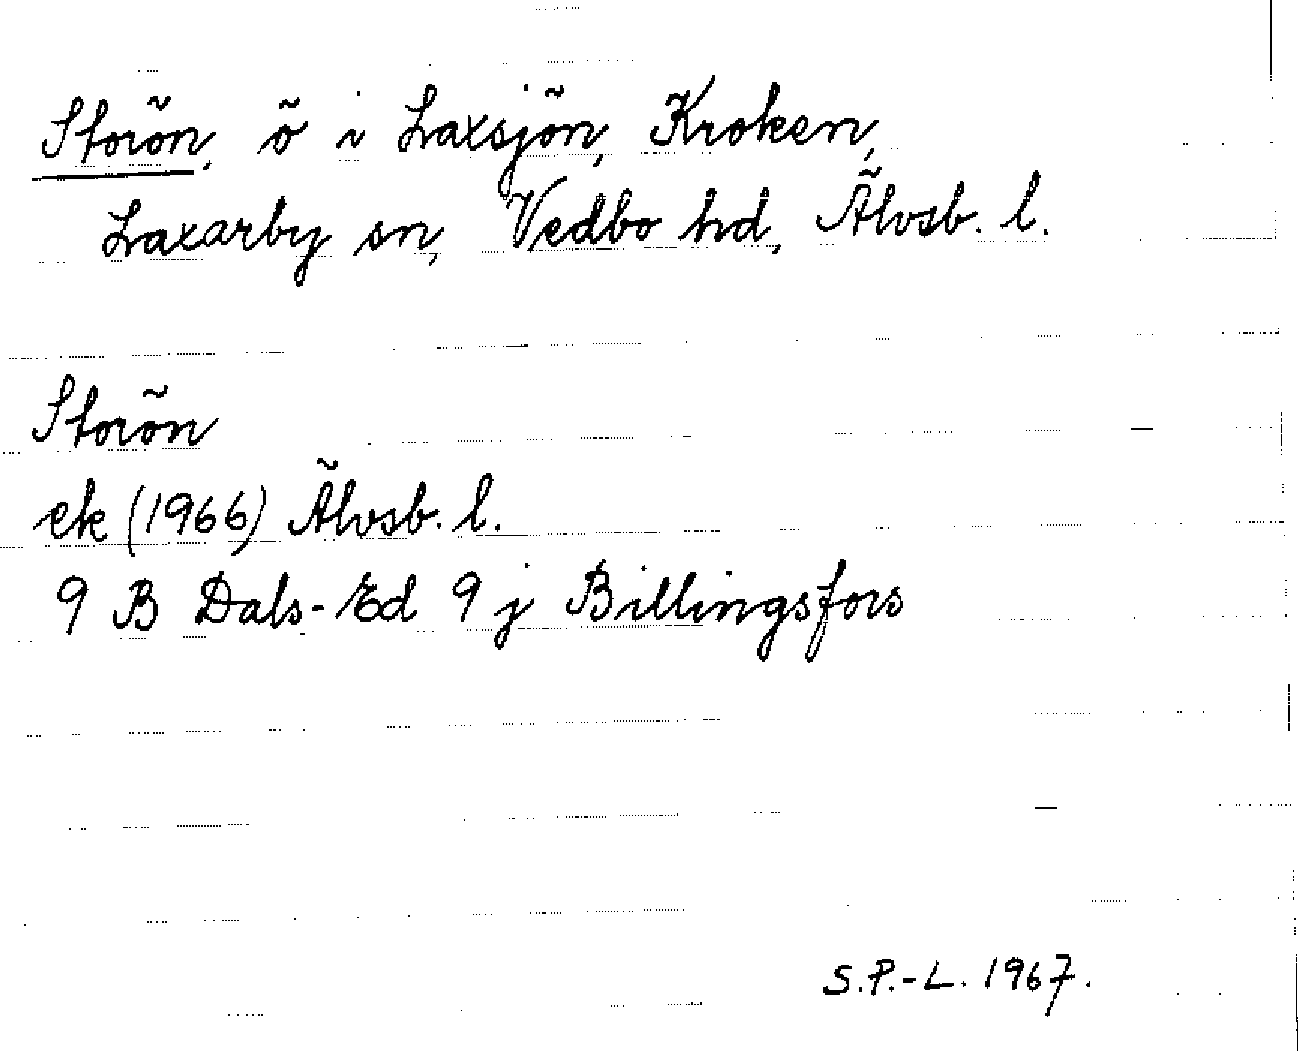 Storön, ö i Laxsjön, Kroken,
Laxarby sn, Vedbo hd, Älvsb. l.
Storön
ek (1966) Älvsb. l.
9 B Dals-Ed 9 j Billingsfors
S.P.-L. 1967.